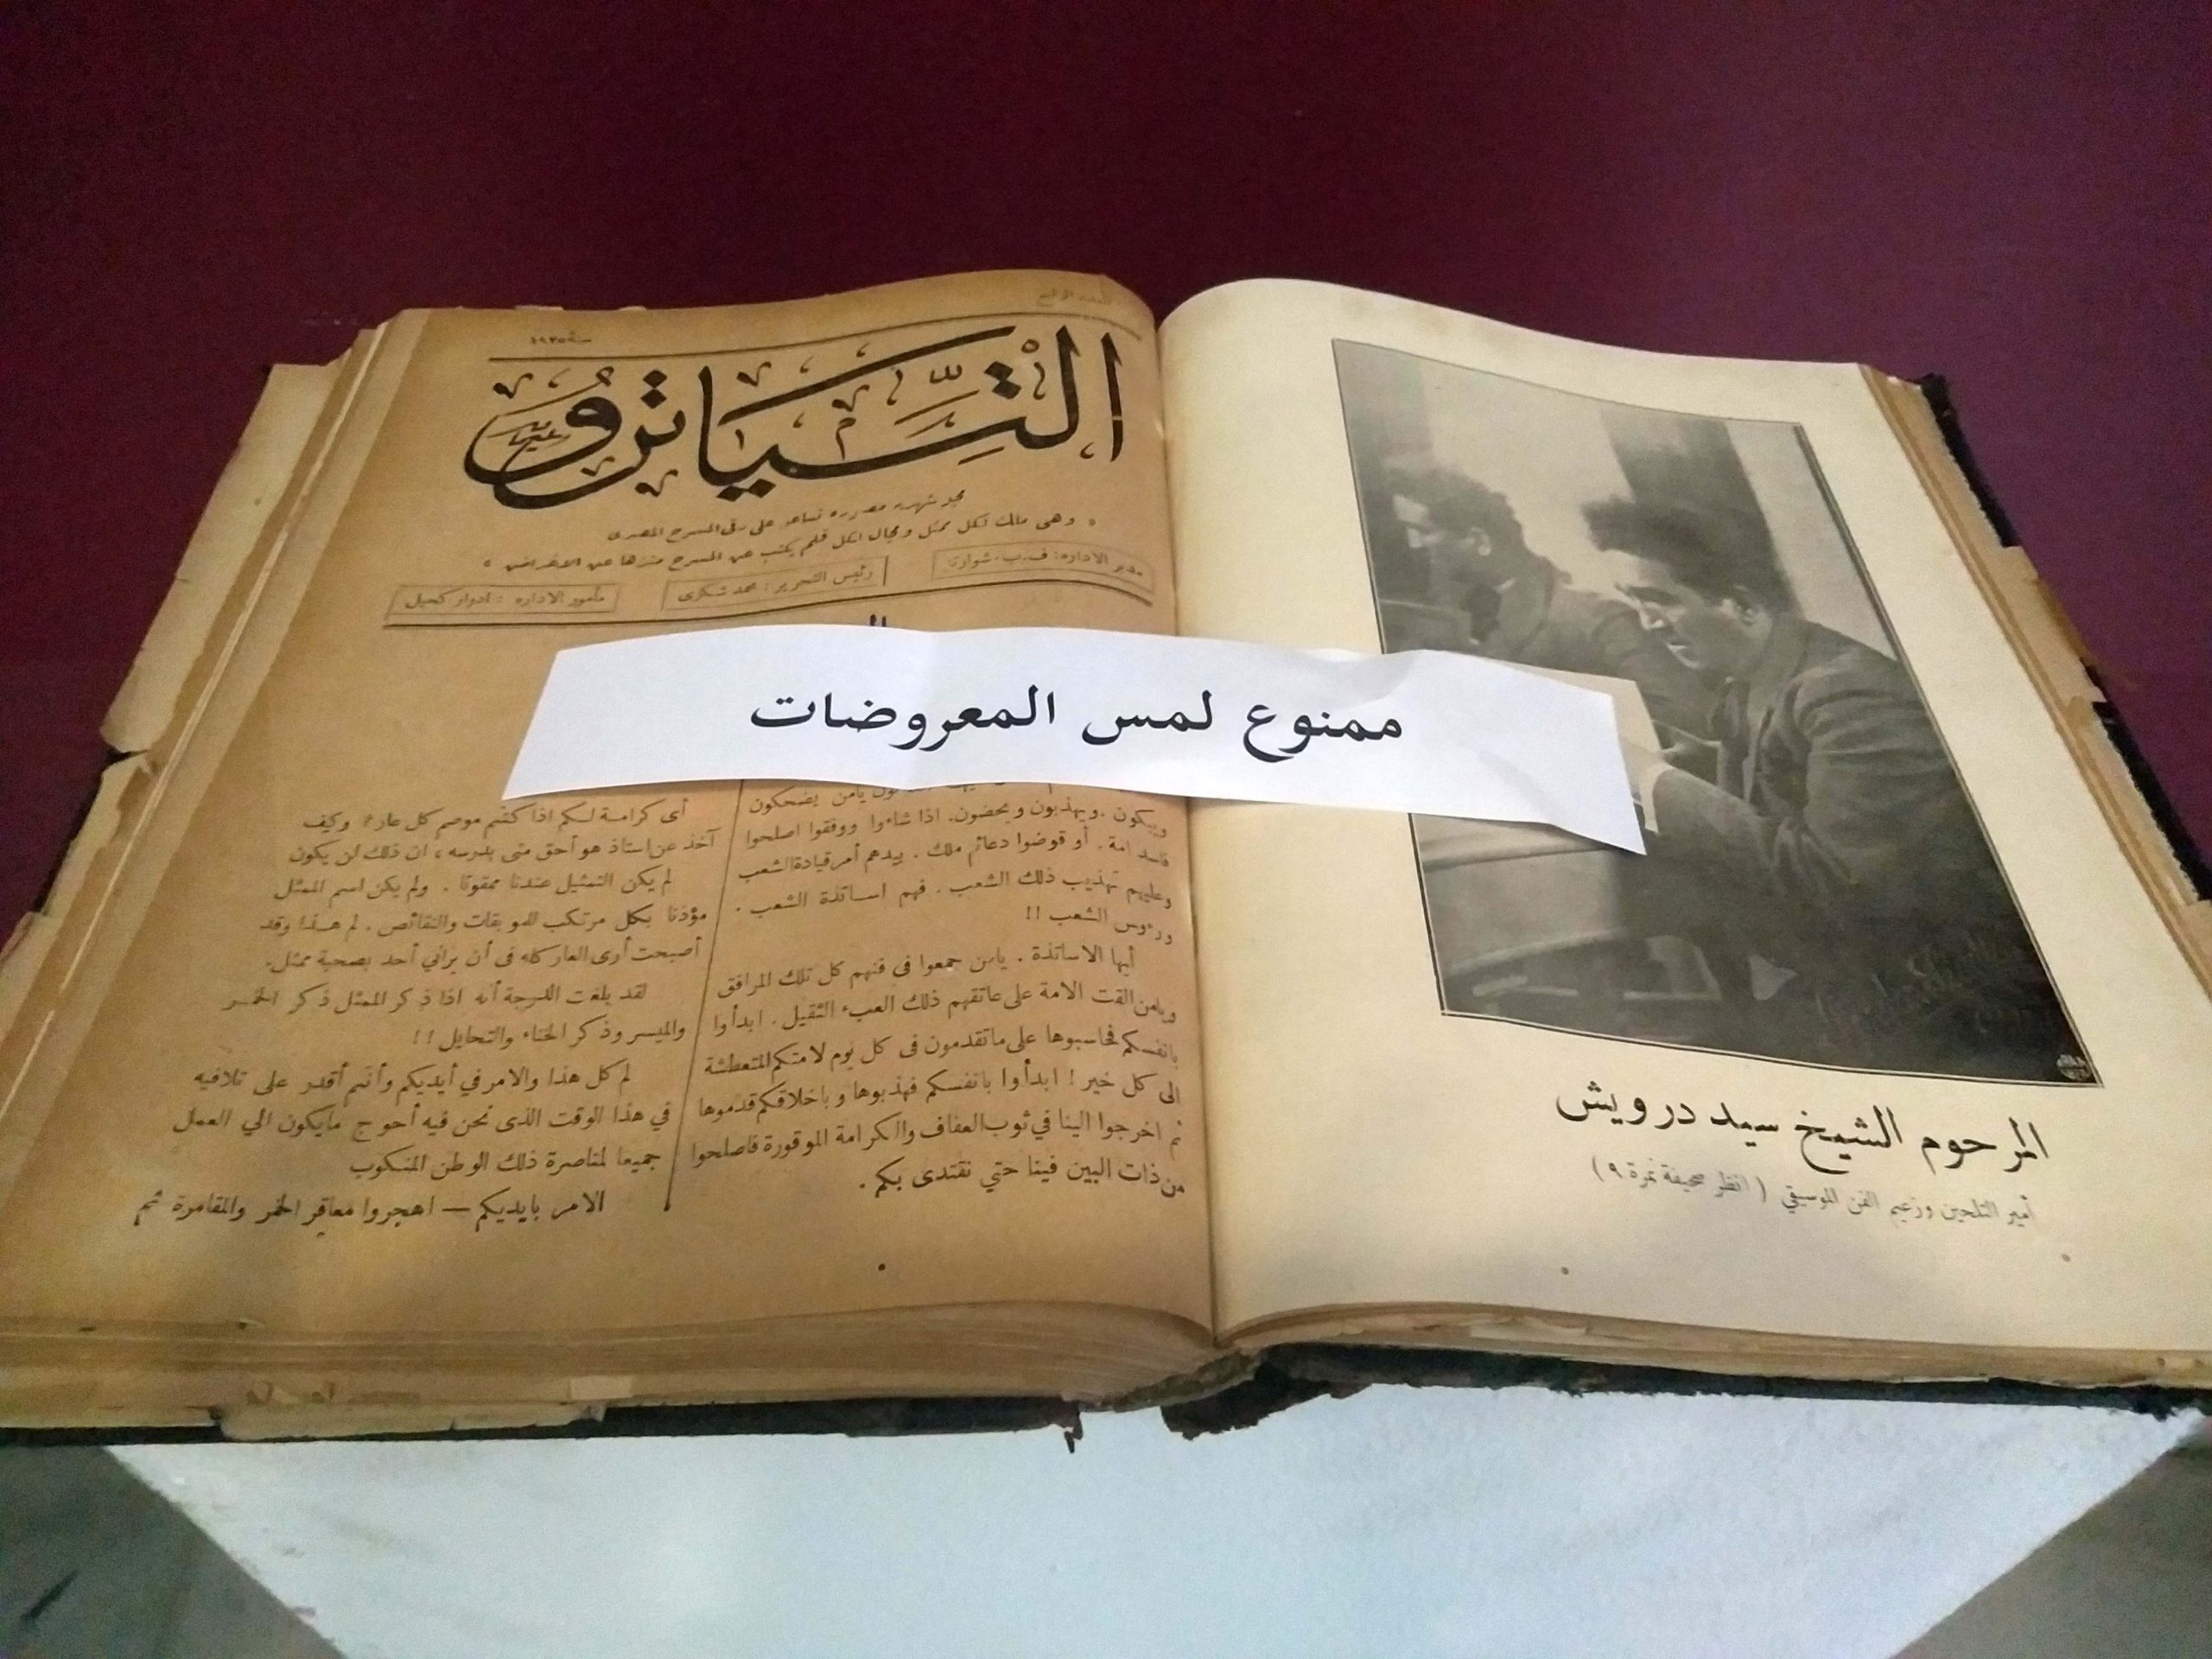 المرحوم الشيخ سيد درويش
أمير التلحين وزعيم الفن الموسيقي ( انظر صحيفة نمرة ٩ )
ممنوع لمس المعروضات
سنة ١٩٢٥
التياترو
مجلة شهرية مصورة تساعد على رقى المسرح المصرى
« وهى ملك لكل ممثل ومجال لكل قلم يكتب عن المسرح منزها عن الاغراض »
مدير الادارة : ف . ب . شوارتز
رئيس التحرير : محمد شكرى
مأمور الادارة : ادوار كحيل
يامن يضحكون
ويبكون . ويهذبون ويحضون . اذا شاءوا ووفقوا اصلحوا
فاسد امة . أو قوضوا دعائم ملك . بيدهم أمر قيادة الشعب
وعليهم تهذيب ذلك الشعب . فهم اساتذة الشعب .
ورءوس الشعب !!
أيها الاساتذة . يامن جمعوا فى فنهم كل تلك المرافق
ويامن القت الامة على عاتقهم ذلك العبء الثقيل . ابدأوا
بانفسكم فحاسبوها على ماتقدمون فى كل يوم لامتكم المتعطشة
الى كل خير ! ابدأوا بانفسكم فهذبوها وباخلاقكم قدموها
ثم اخرجوا الينا في ثوب العفاف والكرامة الموقورة فاصلحوا
من ذات البين فينا حتي نقتدى بكم .
أى كرامة لكم اذا كنتم موصم كل عار ؟ وكيف
آخذ عن استاذ هو أحق منى بدرسه ، ان ذلك لن يكون
لم يكن التمثيل عندنا ممقوتا . ولم يكن اسم الممثل
مؤذنا بكل مرتكب للموبقات والنقائص . لم هذا وقد
أصبحت أرى العار كله فى أن يراني أحد بصحبة ممثل .
لقد بلغت الدرجة أنه اذا ذكر الممثل ذكر الخمر
والميسر وذكر الخناء والتحايل !!
لم كل هذا والامر في أيديكم وأنتم أقدر على تلافيه
في هذا الوقت الذى نحن فيه أحوج مايكون الي العمل
جميعا لمناصرة ذلك الوطن المنكوب
الامر بايديكم — اهجروا معاقر الخمر والمقامرة ثم